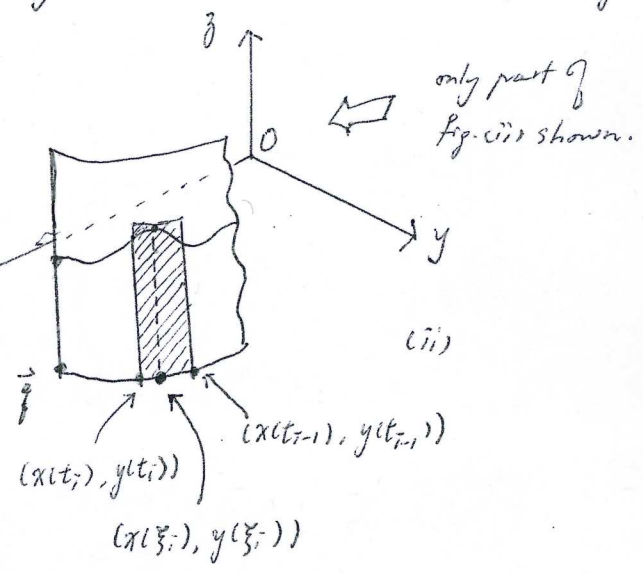 z
only part of
fig.(ii) shown.
O
y
(ii)
q
(x(tᵢ₋₁), y(tᵢ₋₁))
(x(tᵢ), y(tᵢ))
(x(ξᵢ), y(ξᵢ))